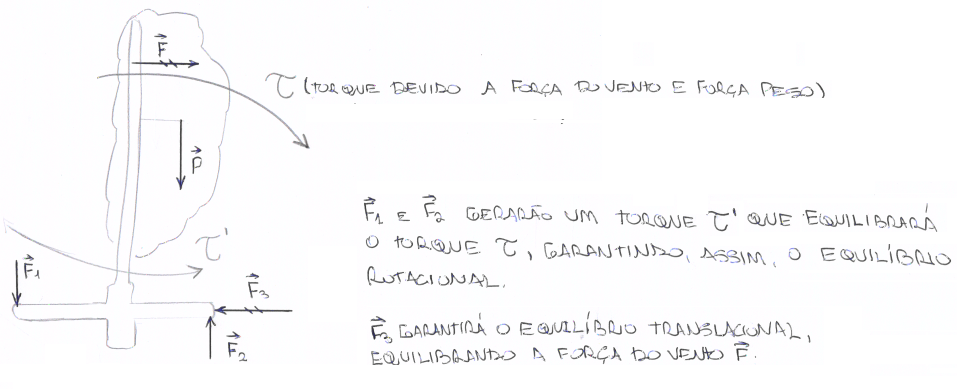 F⃗
τ (TORQUE DEVIDO A FORÇA DO VENTO E FORÇA PESO)
P⃗
F⃗1 E F⃗2 GERARÃO UM TORQUE τ' QUE EQUILIBRARÁ
O TORQUE τ, GARANTINDO, ASSIM, O EQUILÍBRIO
ROTACIONAL.
τ'
F⃗1
F⃗3
F⃗2
F⃗3 GARANTIRÁ O EQUILÍBRIO TRANSLACIONAL,
EQUILIBRANDO A FORÇA DO VENTO F⃗.